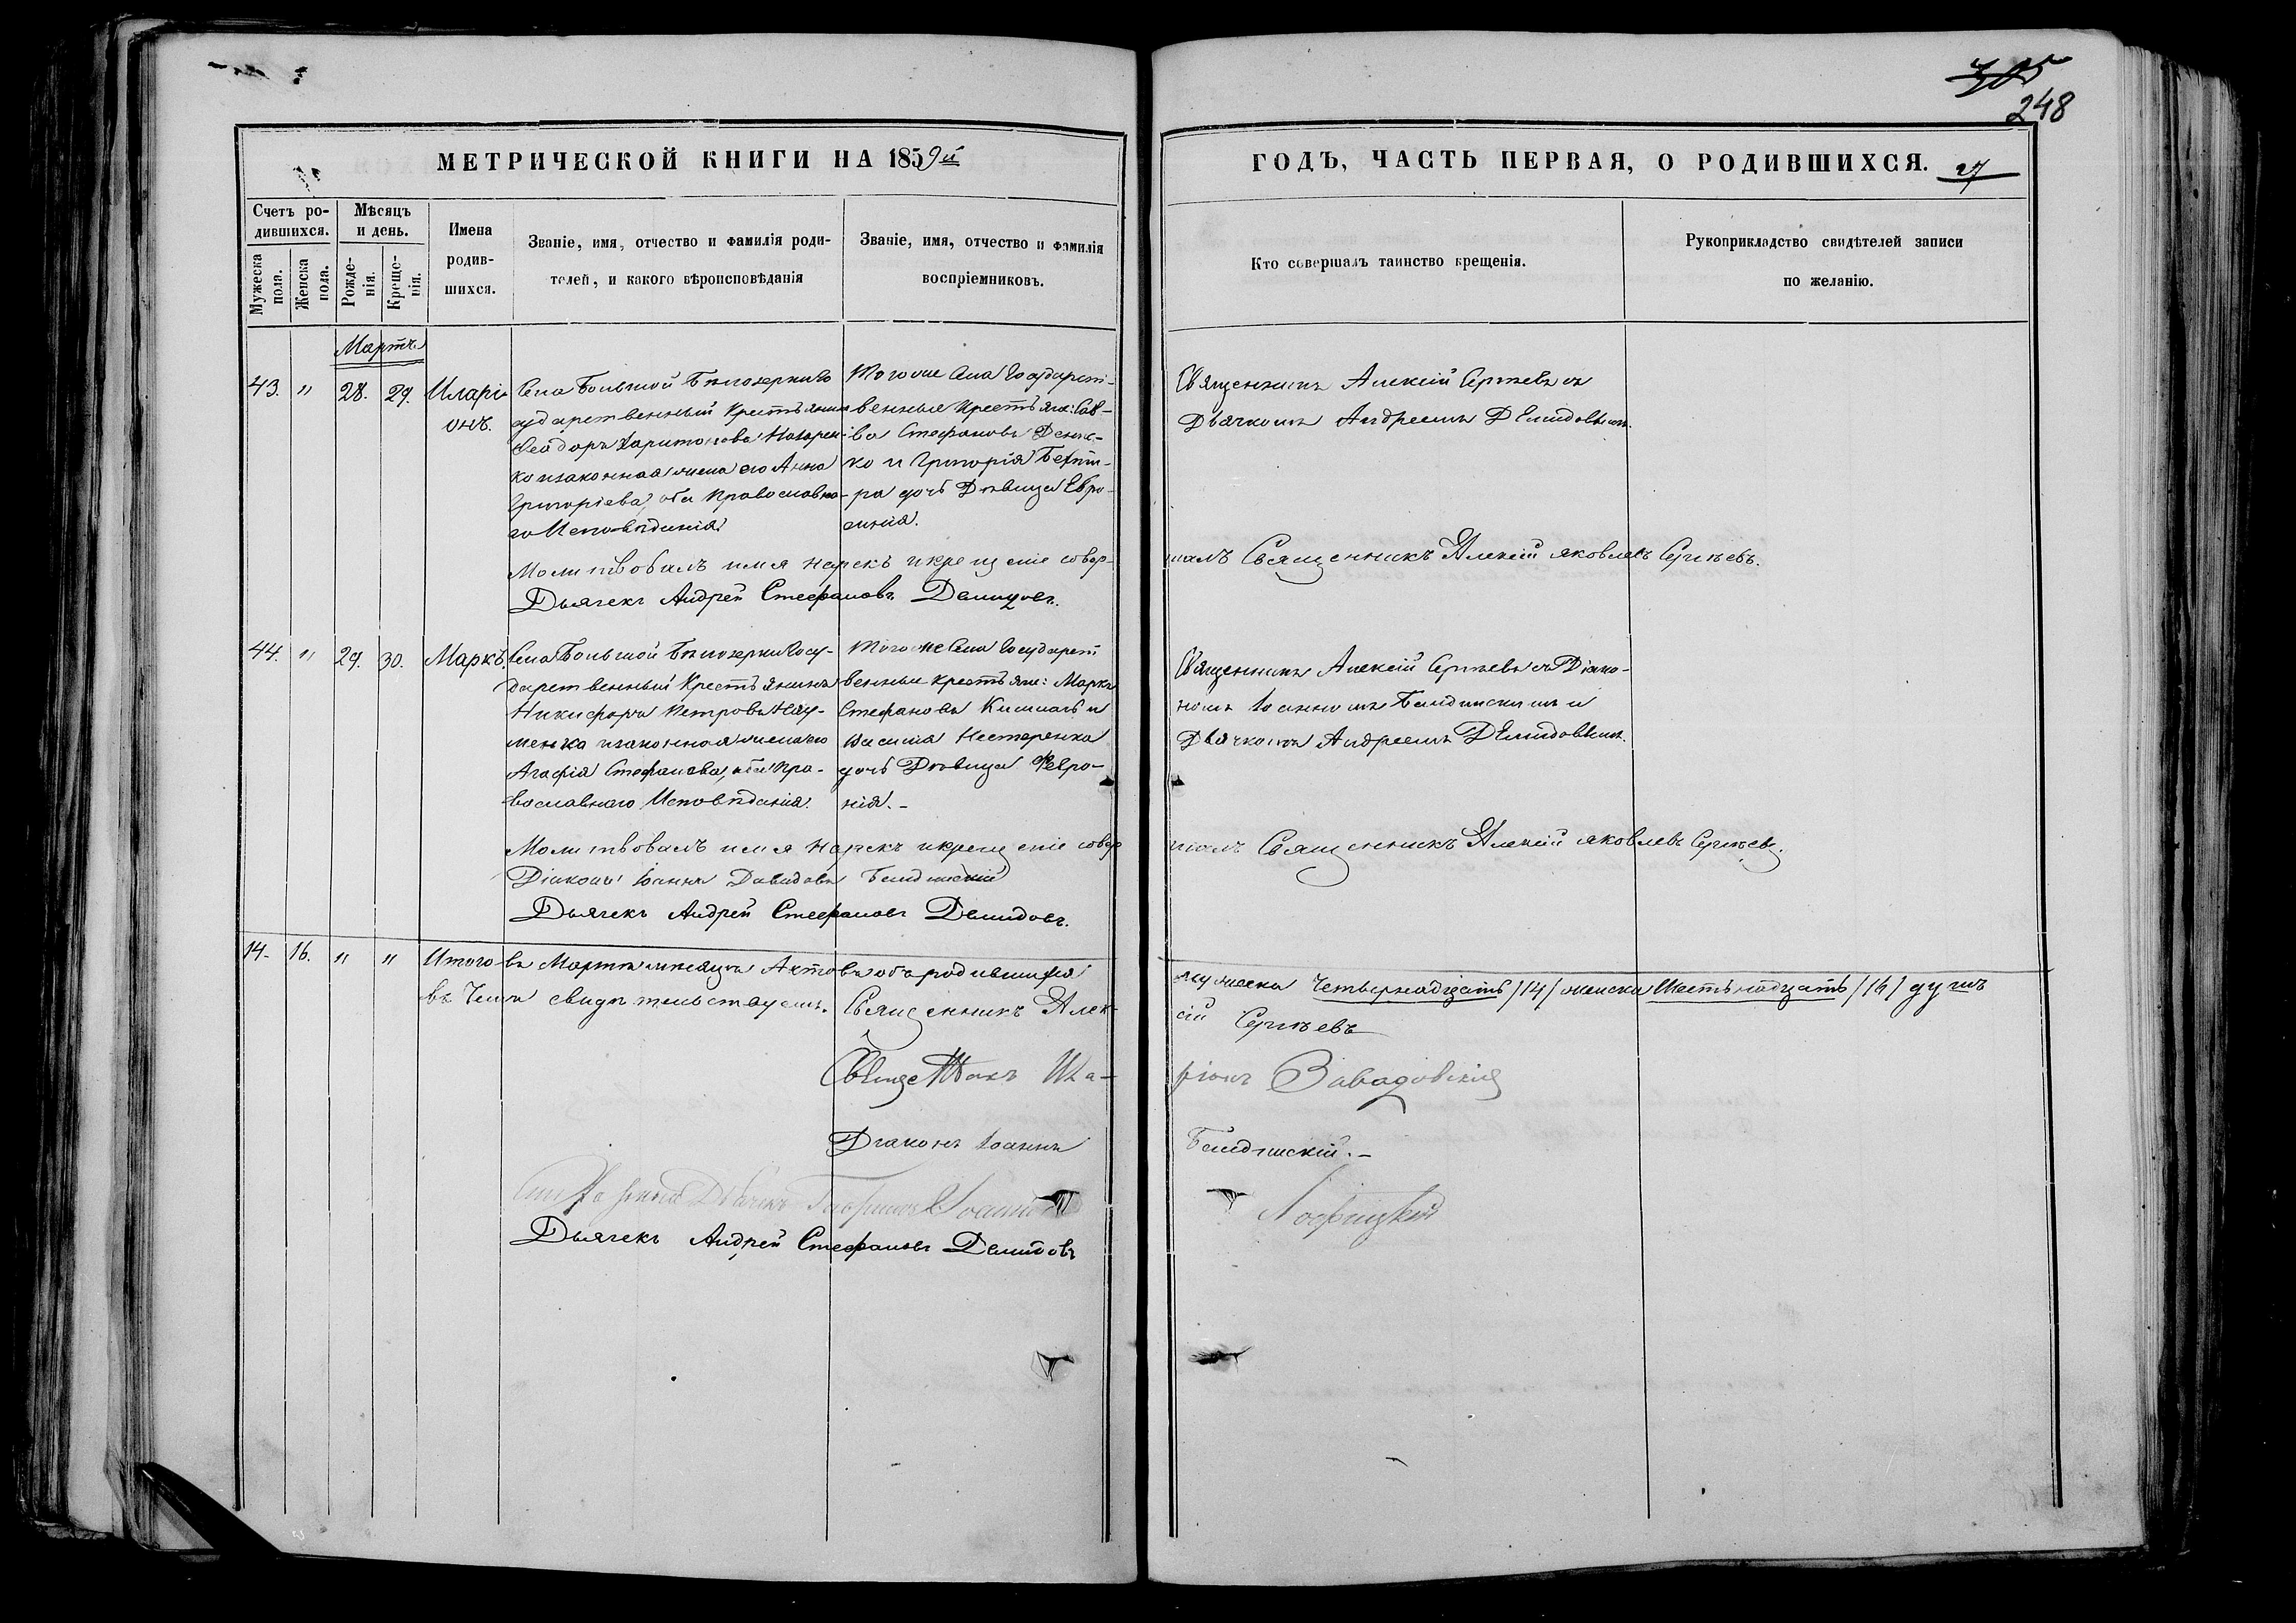 305
248
МЕТРИЧЕСКОЙ КНИГИ НА 1859й
ГОДЪ, ЧАСТЬ ПЕРВАЯ, О РОДИВШИХСЯ. 27
Счетъ родившихся.
Мужеска пола.
Женска пола.
Мѣсяцъ и день.
Рожденія.
Крещенія.
Имена родившихся.
Званіе, имя, отчество и фамилія родителей, и какого вѣроисповѣданія
Званіе, имя, отчество и фамилія воспріемниковъ.
Кто совершалъ таинство крещенія.
Рукоприкладство свидѣтелей записи по желанію.
Мартъ
43. " 28. 29. Иларіонъ.
Села Большой Бѣлозерки Го
сударственный Крестьянинъ
Ѳеодоръ Харитоновъ Назарен-
ко и законная жена его Анна
Григоріева, оба Православна-
го Исповѣданія
Того же Села Государст-
венные Крестьяне: Сав-
ва Стефановъ
ко и Григорія
ра дочь Дѣвица Евро-
синія.
Священникъ Алексій Сергѣевъ съ
Дьячкомъ Андреемъ Демидовымъ.
Молитвовалъ имя нарекъ и крещеніе совер-
шалъ Священникъ Алексій Яковлевъ Сергѣевъ.
Дьячекъ Андрей Стефановъ Демидовъ.
44. " 29. 30. Маркъ.
Села Большой Бѣлозерки Госу-
дарственный Крестьянинъ
Никифоръ Петровъ Нау-
менко и законная жена его
Агафія Стефанова, оба Пра-
вославнаго Исповѣданія.
Того же Села Государст
венные крестьяне: Маркъ
Стефановъ и
Василія Нестеренка
дочь Дѣвица Февро-
нія.-
Священникъ Алексій Сергѣевъ съ Діако-
номъ Іоанномъ и
Дьячкомъ Андреемъ Демидовымъ.
Молитвовалъ имя нарекъ и крещеніе совер
шалъ Священникъ Алексій Яковлевъ Сергѣевъ.
Діаконъ Іоаннъ Давидовъ
Дьячекъ Андрей Стефановъ Демидовъ.
14. 16. " " Итого въ Мартѣ мѣсяцѣ Актовъ объ родившихся мужеска Четырнадцать /14/ женска Шестьнадцать /16/ душъ
въ Чемъ свидѣтельствуемъ. Священникъ Алексій Сергѣевъ
Священникъ Иларіонъ Завадовскій
Діаконъ Іоаннъ
Дьячекъ
Дьячекъ Андрей Стефановъ Демидовъ